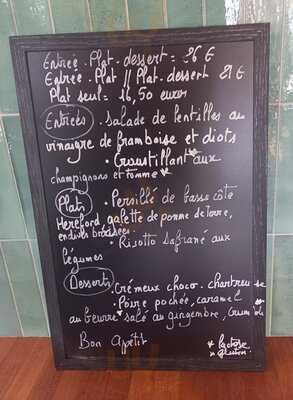 Entrée - Plat - dessert = 26 €
Entrée - Plat // Plat - dessert 21 €
Plat seul = 16,50 euros
Entrées . Salade de lentilles au
vinaigre de framboise et diots
• Croustillant aux
champignons et tomme *
Plats • Persillé de basse côte
Hereford galette de pomme de terre,
endives braisées
• Risotto Safrané aux
légumes
Desserts . Crémeux choco. chartreuse
• Poire pochée, caramel
au beurre salé au gingembre, crumble
Bon Apétit
* lactose
* gluten